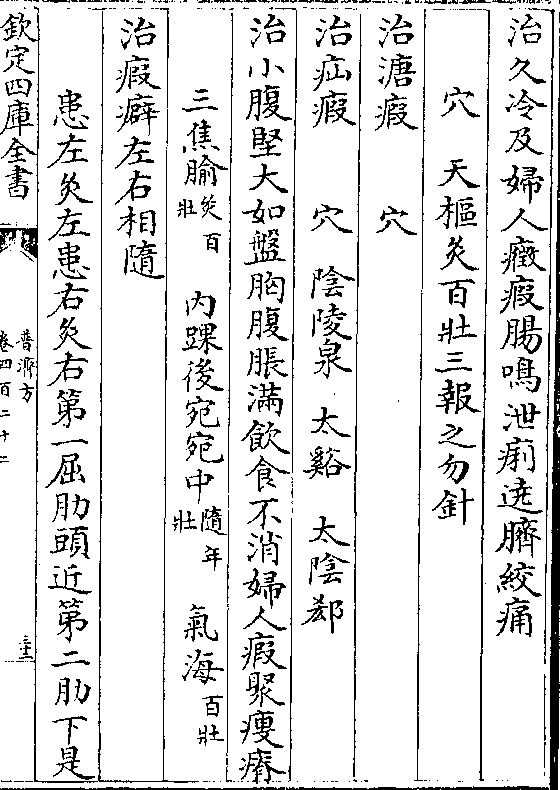 治久冷及婦人癥瘕腸鳴泄痢遶臍絞痛
穴　天樞灸百壯三報之勿針
治溏瘕　穴
治疝瘕　穴　陰陵泉　太谿　太陰郄
治小腹堅大如盤胸腹脹滿飲食不消婦人瘕聚瘦瘠
三焦腧灸百壯　內踝後宛宛中隨年壯　氣海百壯
治瘕癖左右相隨
患左灸左患右灸右第一屈肋頭近第二肋下是
欽定四庫全書
普濟方
卷四百二十二